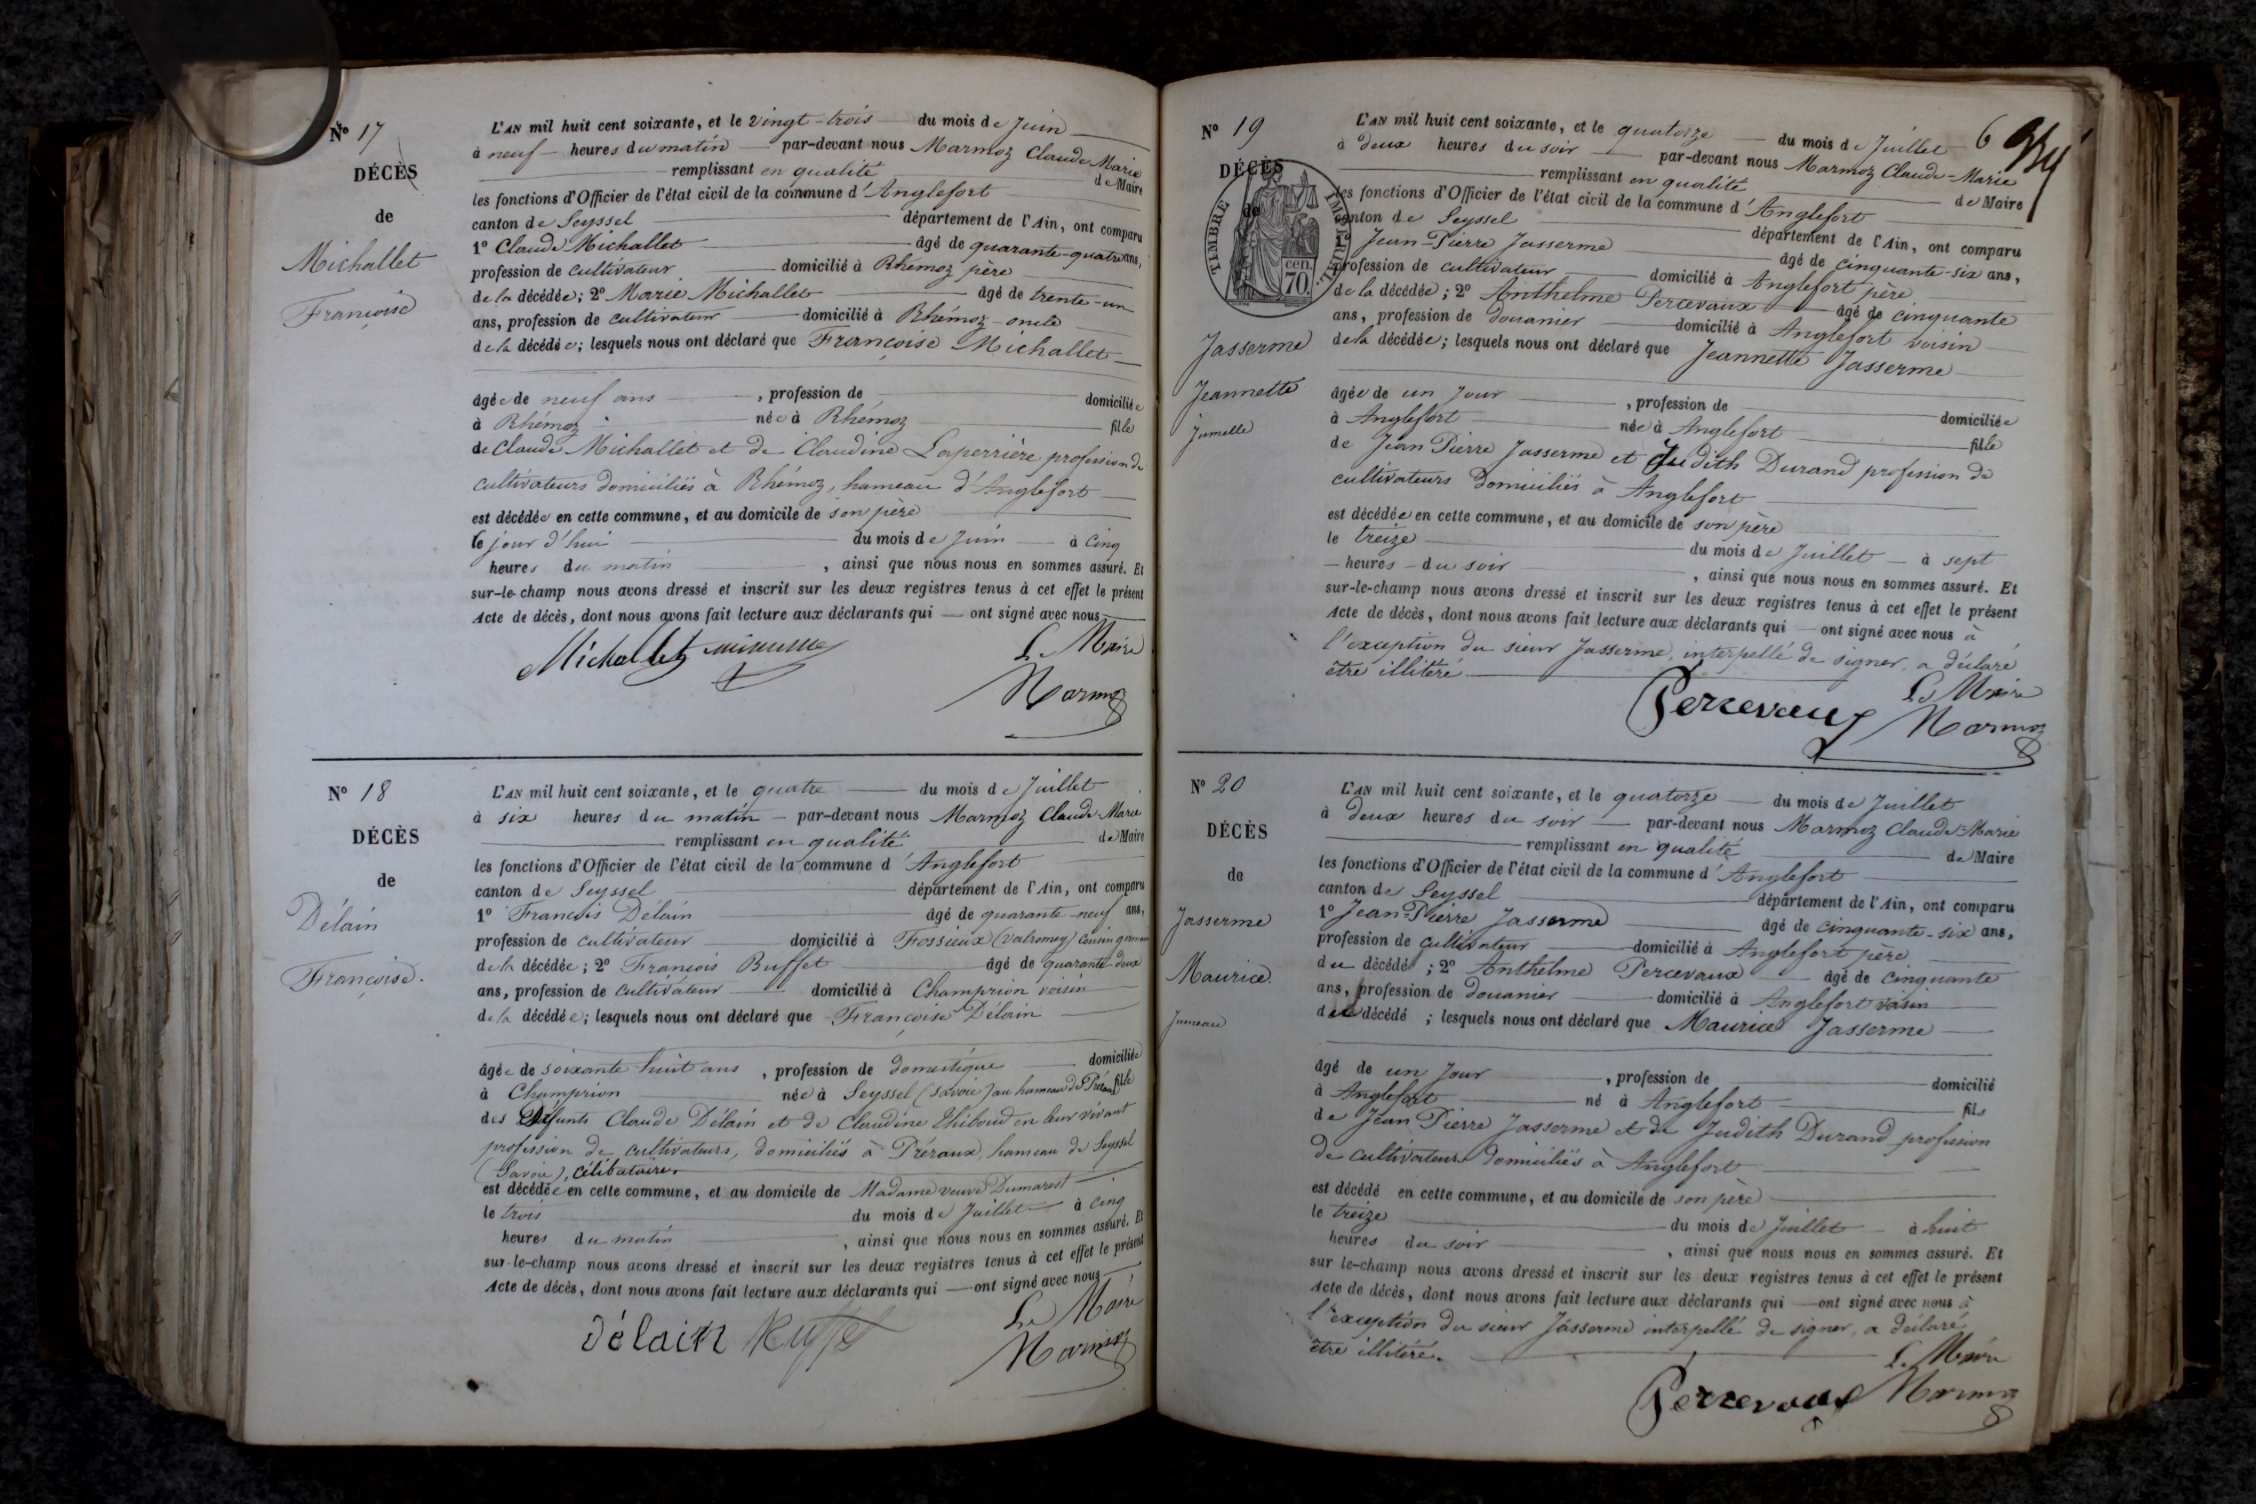 Nº 17
DÉCÈS
de
Michallet
Françoise
L'AN mil huit cent soixante, et le vingt-trois du mois de Juin
à neuf heures du matin par-devant nous Marmoz Claude Marie
remplissant en qualité de Maire
les fonctions d'Officier de l'état civil de la commune d'Anglefort
canton de Seyssel département de l'Ain, ont comparu
1º Claude Michallet âgé de quarante-quatre ans,
profession de cultivateur domicilié à Rhémoz père
de la décédée; 2º Marie Michallet âgé de trente-un
ans, profession de cultivateur domicilié à Rhémoz oncle
de la décédée; lesquels nous ont déclaré que Françoise Michallet
âgée de neuf ans, profession de domiciliée
à Rhémoz née à Rhémoz fille
de Claude Michallet et de Claudine Laperrière profession de
cultivateurs domiciliés à Rhémoz, hameau d'Anglefort
est décédée en cette commune, et au domicile de son père
le jour d'hui du mois de Juin à cinq
heures du matin, ainsi que nous nous en sommes assuré. Et
sur-le-champ nous avons dressé et inscrit sur les deux registres tenus à cet effet le présent
Acte de décès, dont nous avons fait lecture aux déclarants qui ont signé avec nous
Michallet
Le Maire
Marmoz
Nº 18
DÉCÈS
de
Délain
Françoise.
L'AN mil huit cent soixante, et le quatre du mois de Juillet
à six heures du matin par-devant nous Marmoz Claude Marie
remplissant en qualité de Maire
les fonctions d'Officier de l'état civil de la commune d'Anglefort
canton de Seyssel département de l'Ain, ont comparu
1º François Délain âgé de quarante-neuf ans,
profession de cultivateur domicilié à Fossieux (Valromey) cousin germain
de la décédée; 2º François Buffet âgé de quarante-deux
ans, profession de cultivateur domicilié à Champrion voisin
de la décédée; lesquels nous ont déclaré que Françoise Délain
âgée de soixante huit ans, profession de domestique domiciliée
à Champrion née à Seyssel (Savoie) au hameau de fille
des Défunts Claude Délain et de Claudine Thiboud en leur vivant
profession de cultivateurs, domiciliés à Préraux, hameau de Seyssel
(Savoie), célibataire.
est décédée en cette commune, et au domicile de Madame veuve Dumarest
le trois du mois de Juillet à cinq
heures du matin, ainsi que nous nous en sommes assuré. Et
sur-le-champ nous avons dressé et inscrit sur les deux registres tenus à cet effet le présent
Acte de décès, dont nous avons fait lecture aux déclarants qui ont signé avec nous
Délain Buffet
Le Maire
Marmoz
6
Nº 19
DÉCÈS
de
TIMBRE IMPÉRIAL
70 cen.
Jasserme
Jeannette
jumelle
L'AN mil huit cent soixante, et le quatorze du mois de Juillet
à deux heures du soir par-devant nous Marmoz Claude-Marie
remplissant en qualité de Maire
les fonctions d'Officier de l'état civil de la commune d'Anglefort
canton de Seyssel département de l'Ain, ont comparu
1º Jean-Pierre Jasserme âgé de cinquante-six ans,
profession de cultivateur domicilié à Anglefort père
de la décédée; 2º Anthelme Percevaux âgé de cinquante
ans, profession de douanier domicilié à Anglefort voisin
de la décédée; lesquels nous ont déclaré que Jeannette Jasserme
âgée de un jour, profession de domiciliée
à Anglefort née à Anglefort fille
de Jean Pierre Jasserme et Judith Durand profession de
cultivateurs domiciliés à Anglefort
est décédée en cette commune, et au domicile de son père
le treize du mois de Juillet à sept
heures du soir, ainsi que nous nous en sommes assuré. Et
sur-le-champ nous avons dressé et inscrit sur les deux registres tenus à cet effet le présent
Acte de décès, dont nous avons fait lecture aux déclarants qui ont signé avec nous à
l'exception du sieur Jasserme, interpellé de signer, a déclaré
être illitéré
Percevaux
Le Maire
Marmoz
Nº 20
DÉCÈS
de
Jasserme
Maurice.
Jumeau
L'AN mil huit cent soixante, et le quatorze du mois de Juillet
à deux heures du soir par-devant nous Marmoz Claude-Marie
remplissant en qualité de Maire
les fonctions d'Officier de l'état civil de la commune d'Anglefort
canton de Seyssel département de l'Ain, ont comparu
1º Jean-Pierre Jasserme âgé de cinquante-six ans,
profession de cultivateur domicilié à Anglefort père
du décédé; 2º Anthelme Percevaux âgé de cinquante
ans, profession de douanier domicilié à Anglefort voisin
du décédé; lesquels nous ont déclaré que Maurice Jasserme
âgé de un jour, profession de domicilié
à Anglefort né à Anglefort fils
de Jean Pierre Jasserme et de Judith Durand profession
de cultivateurs domiciliés à Anglefort
est décédé en cette commune, et au domicile de son père
le treize du mois de Juillet à huit
heures du soir, ainsi que nous nous en sommes assuré. Et
sur le-champ nous avons dressé et inscrit sur les deux registres tenus à cet effet le présent
Acte de décès, dont nous avons fait lecture aux déclarants qui ont signé avec nous à
l'exception du sieur Jasserme interpellé de signer, a déclaré
être illitéré.
Le Maire
Percevaux Marmoz